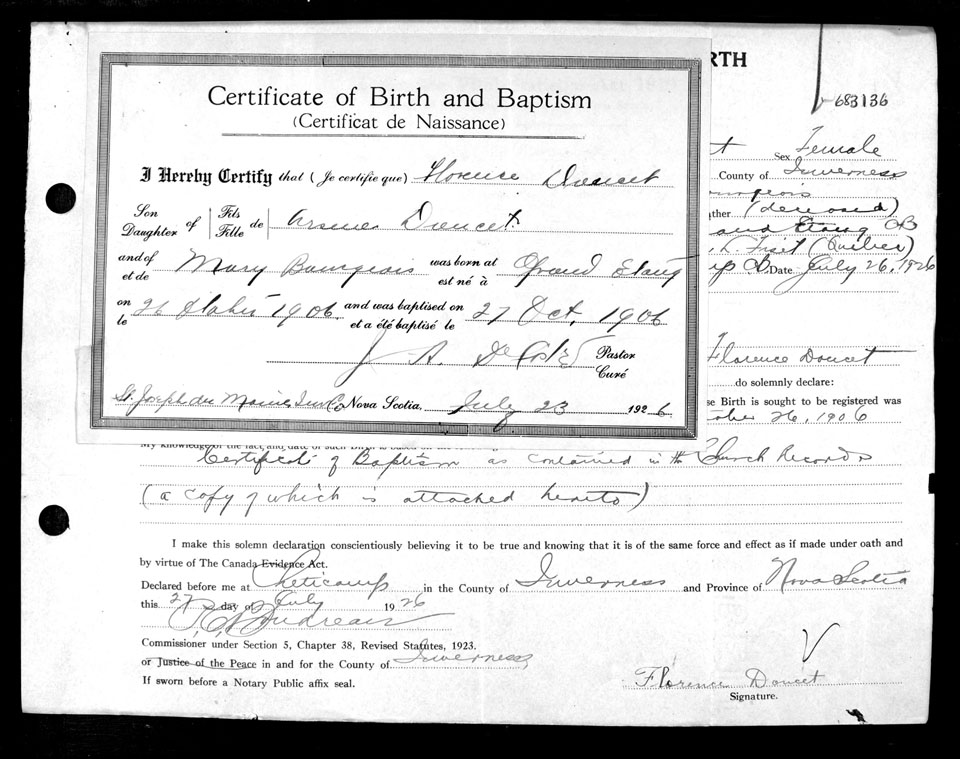 RTH
683136
Certificate of Birth and Baptism
(Certificat de Naissance)
I Hereby Certify that (Je certifie que) Florence Doucet
Son Daughter of Fils Fille de Doucet
and of et de Mary Bourgeois was born at est né à Grand Etang
on le 26 1906 and was baptised on et a été baptisé le 27 Oct. 1906
J A. Pastor Curé
St. Joseph du Moine Inv Co Nova Scotia, July 23 1926
Sex Female
County of Inverness
(deceased)
(Quebec)
Date July 26, 1926
Florence Doucet
do solemnly declare:
se Birth is sought to be registered was
ober 26, 1906
My knowledge of the fact and date of such Birth is
Certificate of Baptism as contained in the Church Records
(a copy of which is attached hereto)
I make this solemn declaration conscientiously believing it to be true and knowing that it is of the same force and effect as if made under oath and
by virtue of The Canada Evidence Act.
Declared before me at Cheticamp in the County of Inverness and Province of Nova Scotia
this 27 day of July 1926
Commissioner under Section 5, Chapter 38, Revised Statutes, 1923.
or Justice of the Peace in and for the County of Inverness
If sworn before a Notary Public affix seal.
Florence Doucet
Signature.